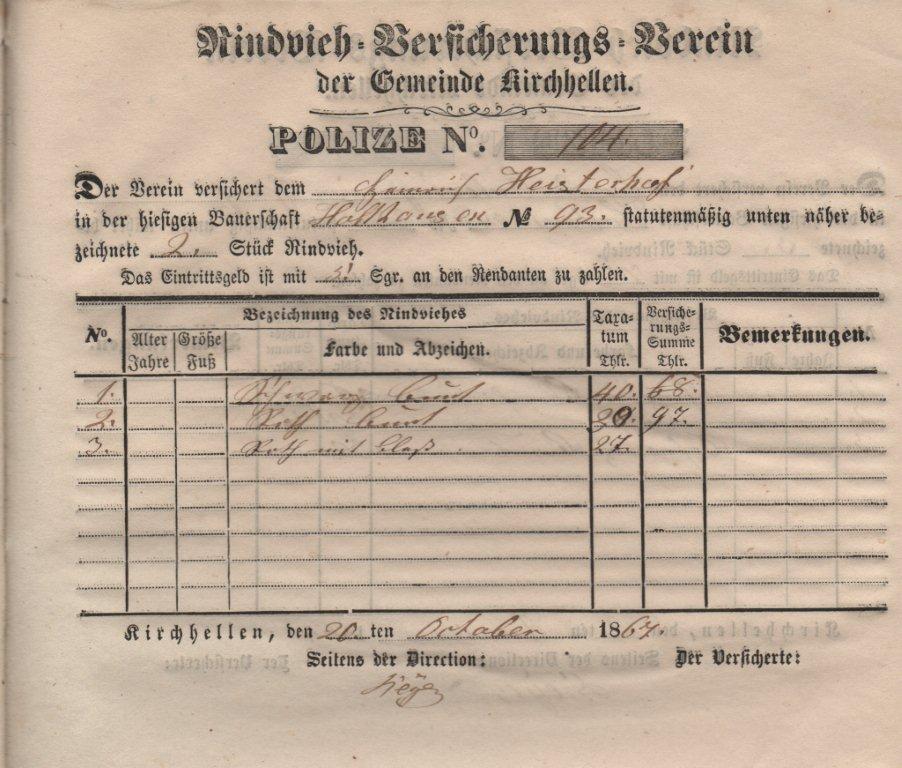 Rindvieh-Versicherungs-Verein
der Gemeinde Kirchhellen.
POLIZE No. 104.
Der Verein versichert dem Heinrich Heisterhoff
in der hiesigen Bauerschaft Holthausen No 93. statutenmäßig unten näher be-
zeichnete 2. Stück Rindvieh.
Das Eintrittsgeld ist mit Sgr. an den Rendanten zu zahlen.
No. Bezeichnung des Rindviehes Taxa-tum Thlr. Versiche-rungs-Summe Thlr. Bemerkungen.
Alter Jahre Größe Fuß Farbe und Abzeichen.
1. Schwarz bunt 40. 68.
2. Roth bunt 97.
3. Roth mit blaß 27.
Kirchhellen, den 20 ten October 1867.
Seitens der Direction: Der Versicherte: